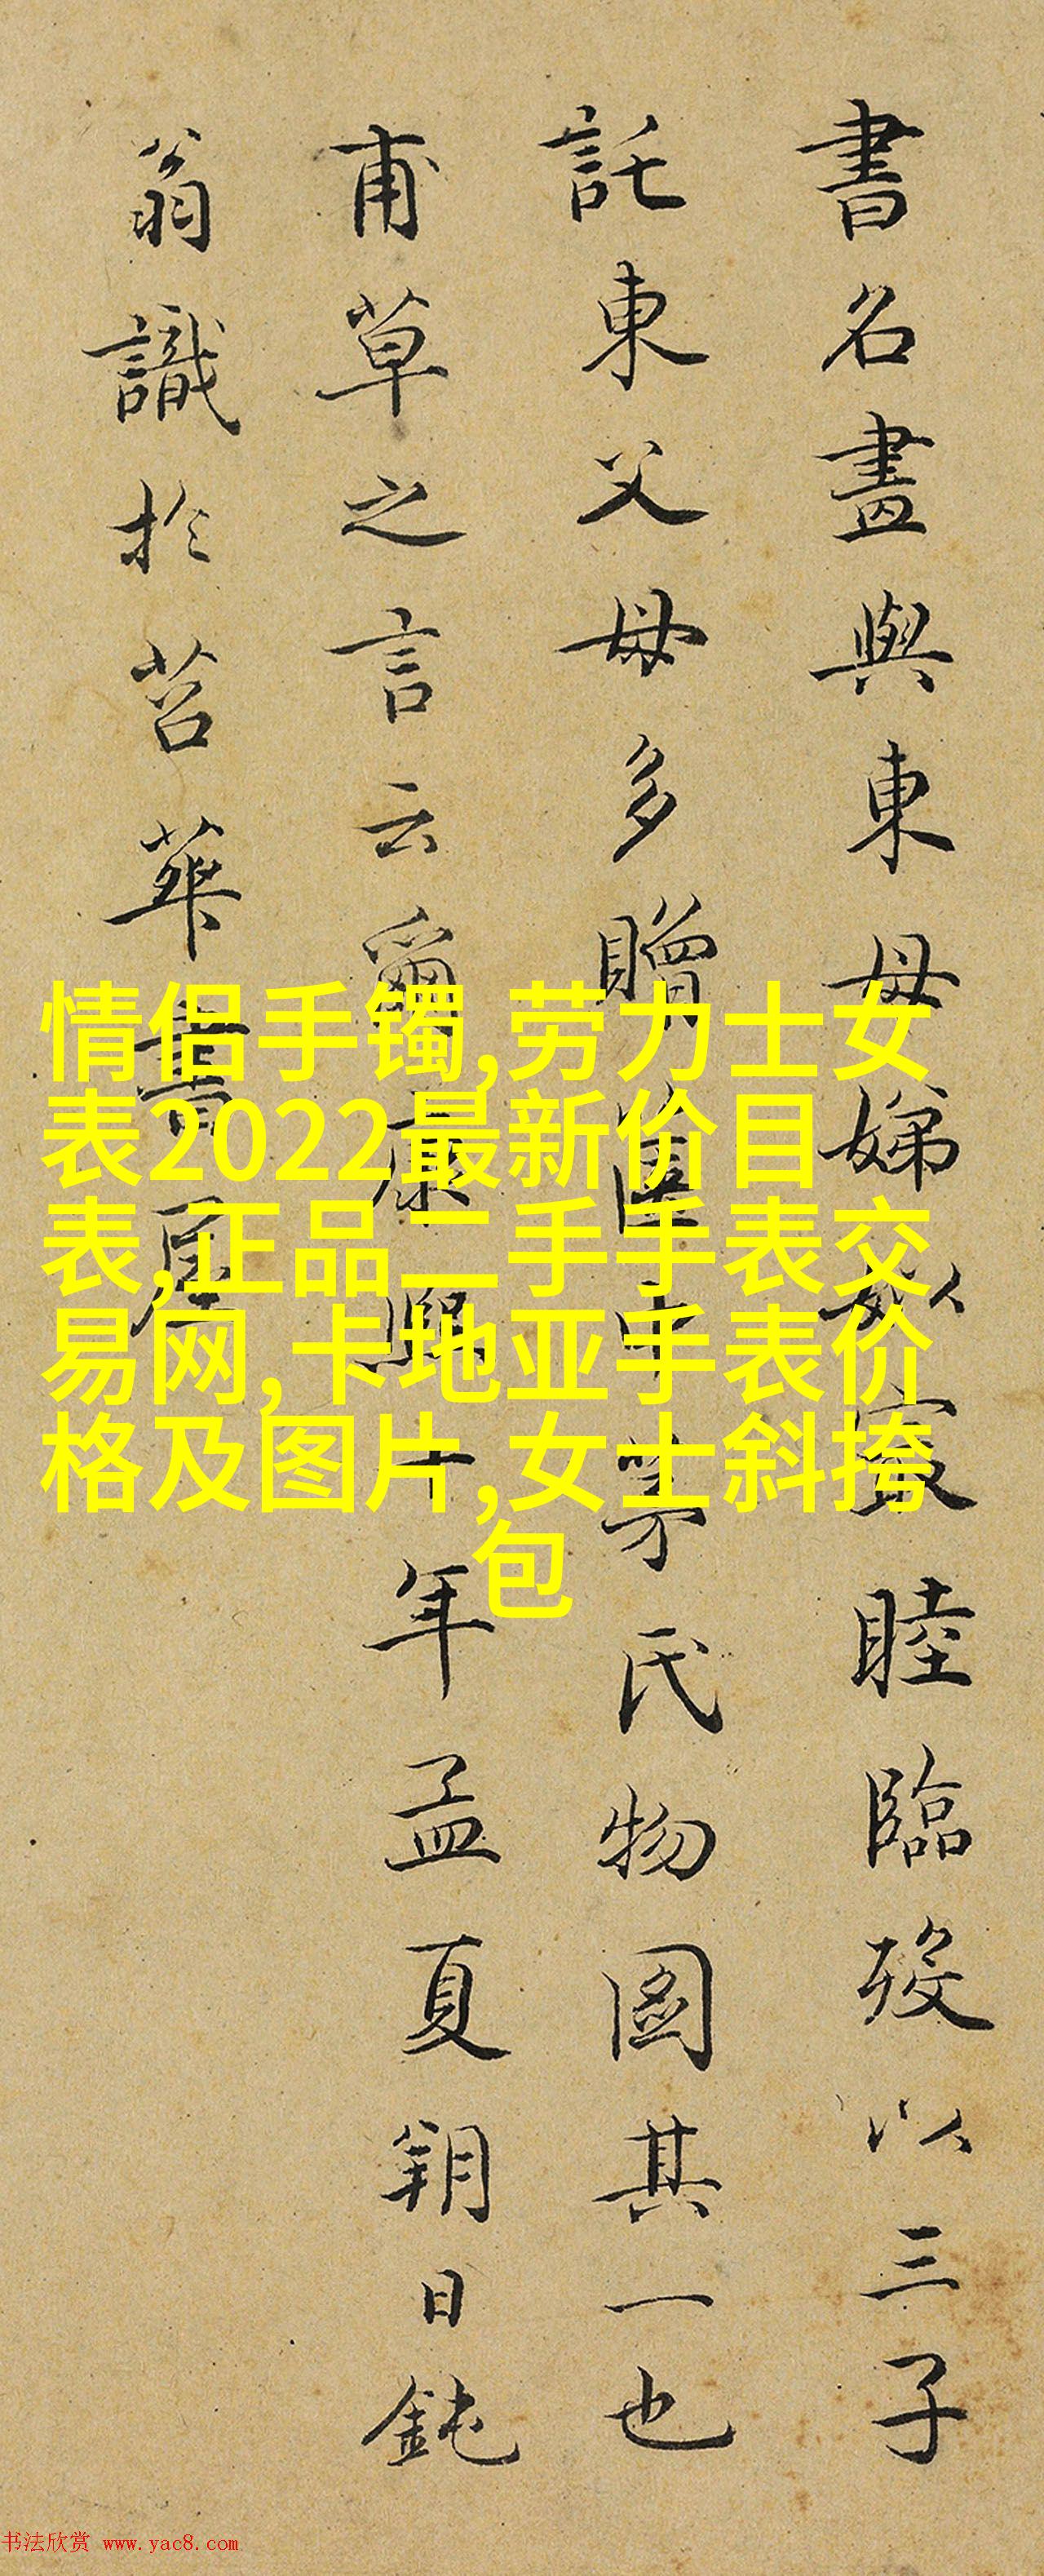 書名畫與東母娣姒最睦臨歿以三子
託東父母多贈舊巾茅氏物圖其一也
甫草之言云爾康熙十年孟夏朔日鈍
翁識於苕華書屋
情侣手镯,劳力士女
表2022最新价目
表,正品二手手表交
易网,卡地亚手表价
格及图片,女士斜挎
包
书法欣赏 www.yac8.com